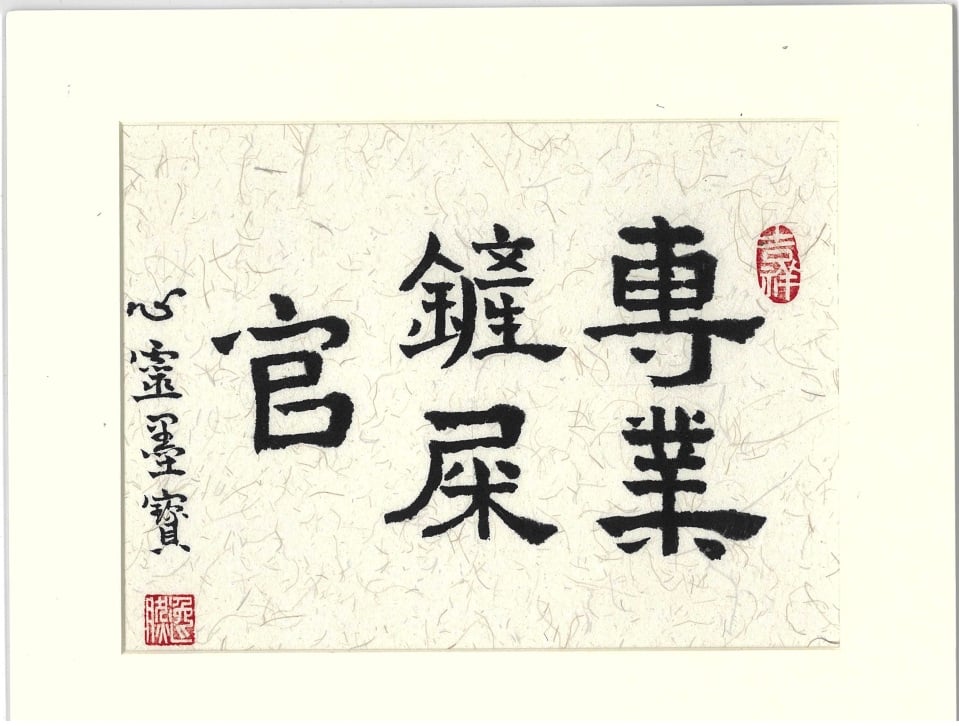 吉祥
專業
鏟屎
官
心靈墨寶